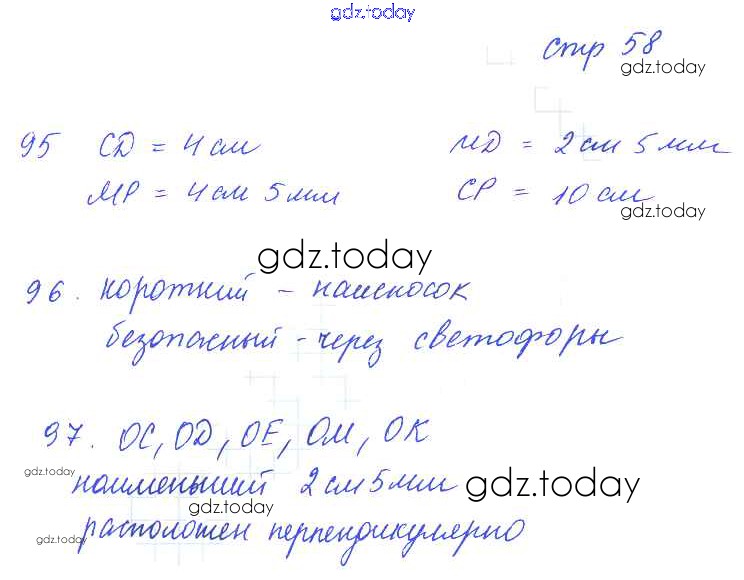 gdz.today
стр 58
gdz.today
95 CD = 4 см MD = 2 см 5 мм
MP = 4 см 5 мм CP = 10 см
gdz.today
gdz.today
96. короткий - наискосок
безопасный - через светофоры
97. OC, OD, OE, OM, OK
gdz.today
наименьший 2 см 5 мм gdz.today
gdz.today расположен перпендикулярно